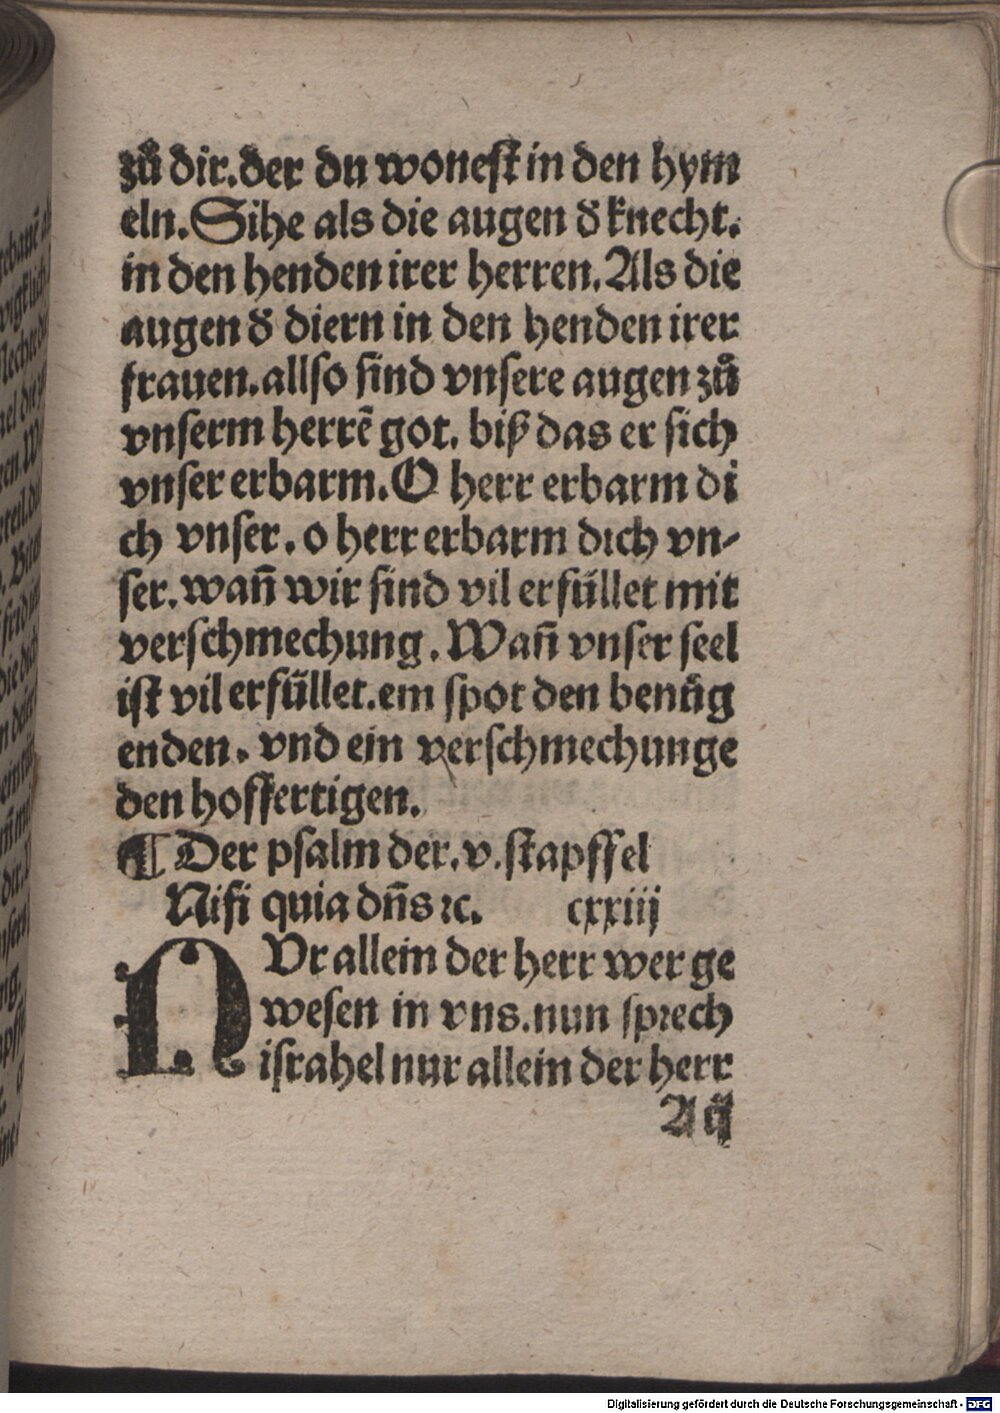 zů dir. der du wonest in den hym
eln. Sihe als die augen d̕ knecht.
in den henden irer herren. Als die
augen d̕ diern in den henden irer
frauen. allso sind vnsere augen zů
vnserm herrē got. biß das er sich
vnser erbarm. O herr erbarm di
ch vnser. o herr erbarm dich vn-
ser. wañ wir sind vil erfüllet mit
verschmechung. Wañ vnser seel
ist vil erfüllet. ein spot den benüg
enden. vnd ein verschmechunge
den hoffertigen.
¶ Der psalm der. v. stapffel
Nisi quia dñs ⁊c. cxxiij
NVr allein der herr wer ge
wesen in vns. nun sprech
israhel nur allein der herr
A ij
Digitalisierung gefördert durch die Deutsche Forschungsgemeinschaft - DFG